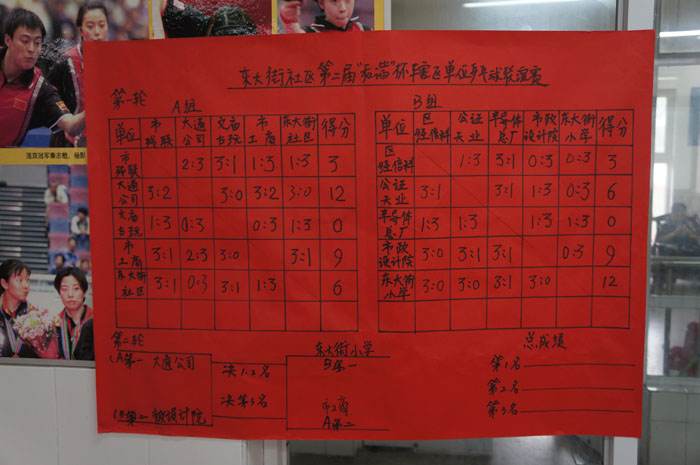 东大街社区第二届"和谐"杯辖区单位乒乓球联谊赛
第一轮 A组 B组
单位 市残联 大通公司 文庙古玩 市工商 东大街社区 得分
市残联 2:3 3:1 1:3 1:3 3
大通公司 3:2 3:0 3:2 3:0 12
文庙古玩 1:3 0:3 0:3 1:3 0
市工商 3:1 2:3 3:0 3:1 9
东大街社区 3:1 0:3 3:1 1:3 6
单位 区 公证天业 半导体总厂 市政设计院 东大街小学 得分
区 1:3 3:1 0:3 0:3 3
公证天业 3:1 3:1 1:3 0:3 6
半导体总厂 1:3 1:3 1:3 1:3 0
市政设计院 3:0 3:1 3:1 0:3 9
东大街小学 3:0 3:0 3:1 3:0 12
第二轮
A第一 大通公司
决1.2名
决第3名
B第二 设计院
东大街小学
B第一
市工商
A第二
总成绩
第1名
第2名
第3名